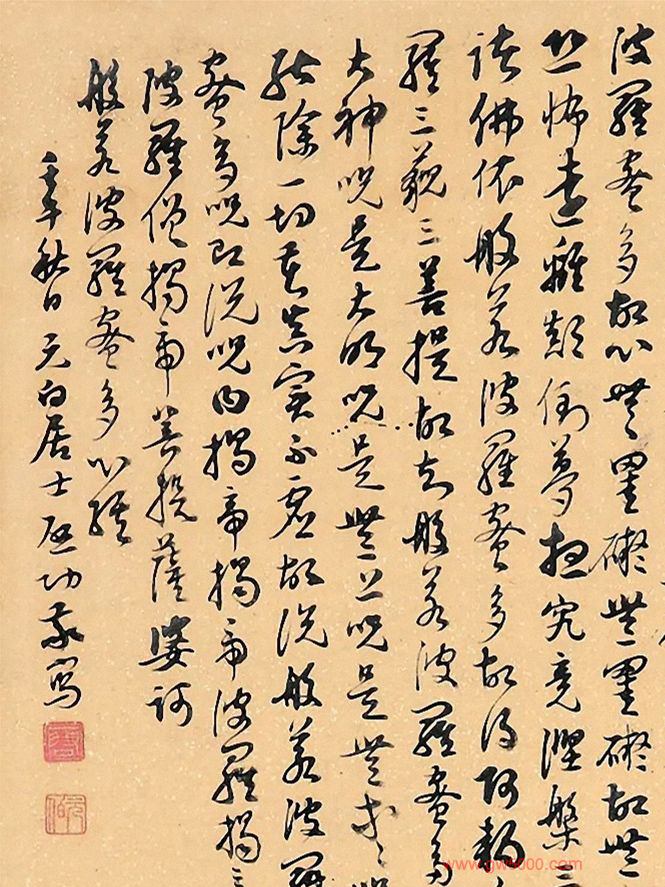 波羅蜜多故心無罣礙無罣礙故無
恐怖遠離顛倒夢想究竟涅槃三
諸佛依般若波羅蜜多故得阿耨
羅三藐三菩提故知般若波羅蜜多
大神呪是大明呪是無上呪是無等々呪
能除一切苦真實不虛故説般若波羅
蜜多呪即説呪曰揭帝揭帝波羅揭
波羅僧揭帝菩提薩婆訶
般若波羅蜜多心經
壬午秋日元白居士啟功敬寫
www.gw5000.com